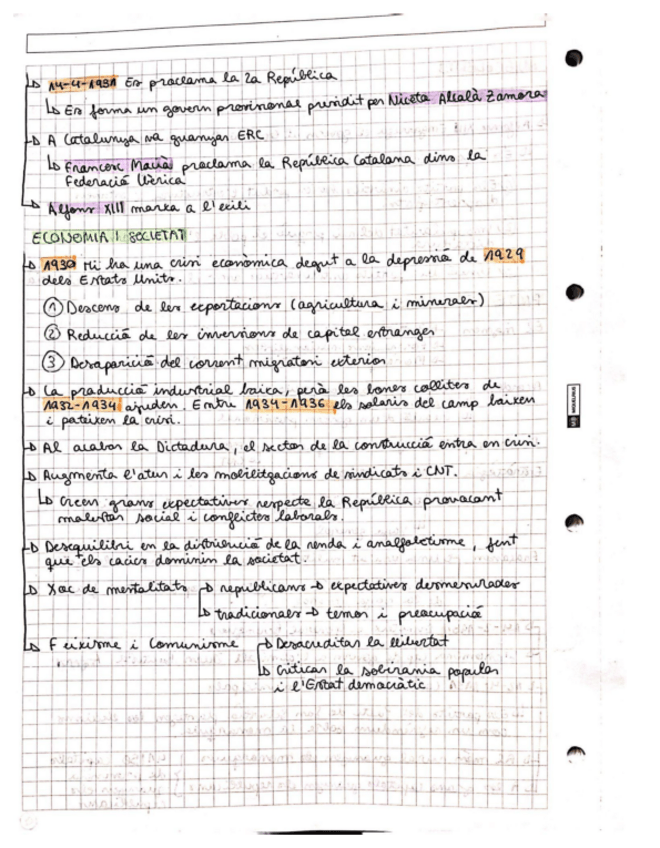 ↳ 14-4-1931 Es proclama la 2a República
↳ Es forma un govern provisional presidit per Niceto Alcalà Zamora
↳ A Catalunya va guanyar ERC
↳ Francesc Macià proclama la República Catalana dins la
Federació Ibèrica
↳ Alfons XIII marxa a l'exili
ECONOMIA I SOCIETAT
↳ 1930 Hi ha una crisi econòmica degut a la depressió de 1929
dels Estats Units.
① Descens de les exportacions (agricultura i minerals)
② Reducció de les inversions de capital estranger
③ Desaparició del corrent migratori exterior
↳ La producció industrial baixa, però les bones collites de
1932-1934 ajuden. Entre 1934-1936 els salaris del camp baixen
i pateixen la crisi.
↳ Al acabar la Dictadura, el sector de la construcció entra en crisi.
↳ Augmenta l'atur i les mobilitzacions de sindicats i CNT.
↳ Creen grans expectatives respecte la República provocant
malestar social i conflictes laborals.
↳ Desequilibri en la distribució de la renda i analfabetisme, fent
que els cacics dominin la societat.
↳ Xoc de mentalitats → republicans → expectatives desmesurades
↳ tradicionals → temor i preocupació
↳ Feixisme i Comunisme → Desacreditar la llibertat
↳ Criticar la sobirania popular
i l'Estat democràtic
MIQUELRIUS